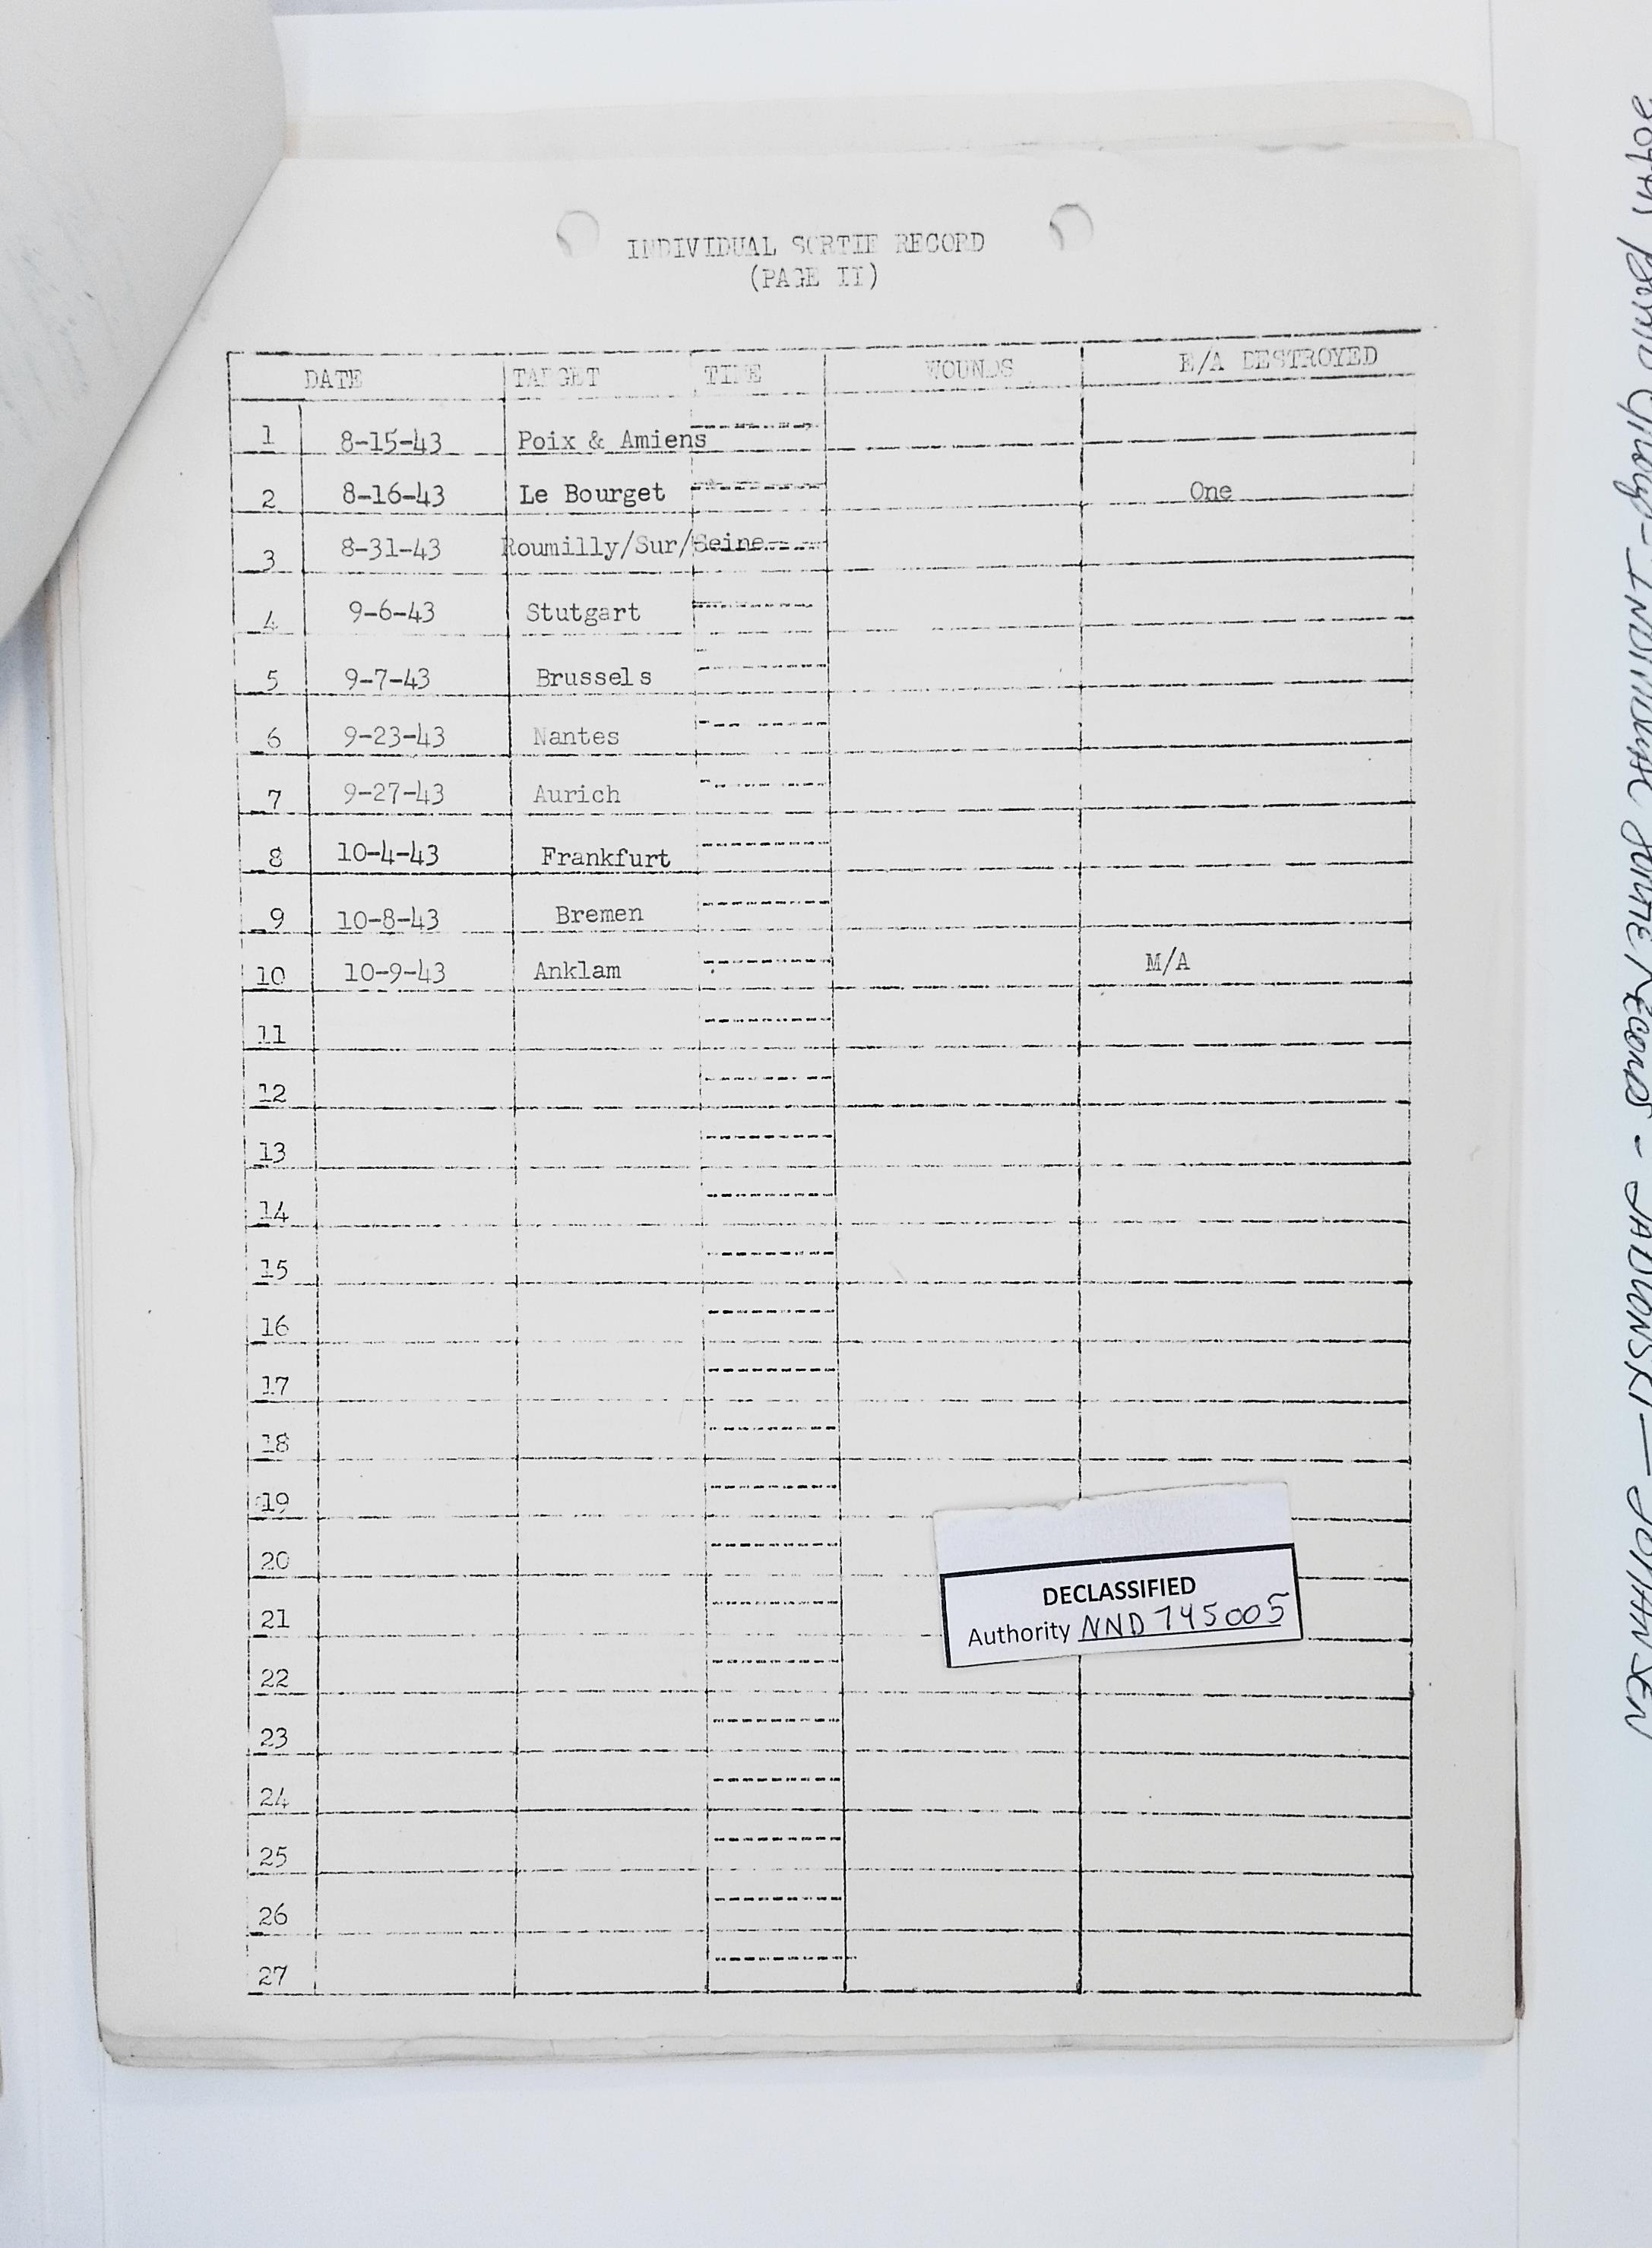 INDIVIDUAL SORTIE RECORD
(PAGE II)
DATE TARGET TIME WOUNDS E/A DESTROYED
1 8-15-43 Poix & Amiens
2 8-16-43 Le Bourget One
3 8-31-43 Roumilly/Sur/Seine
4 9-6-43 Stutgart
5 9-7-43 Brussels
6 9-23-43 Nantes
7 9-27-43 Aurich
8 10-4-43 Frankfurt
9 10-8-43 Bremen
10 10-9-43 Anklam M/A
11
12
13
14
15
16
17
18
19
20
21
22
23
24
25
26
27
DECLASSIFIED
Authority NND 745005
BOMB GROUP - INDIVIDUAL SORTIE RECORDS - JABLONSKI — JOHANSEN